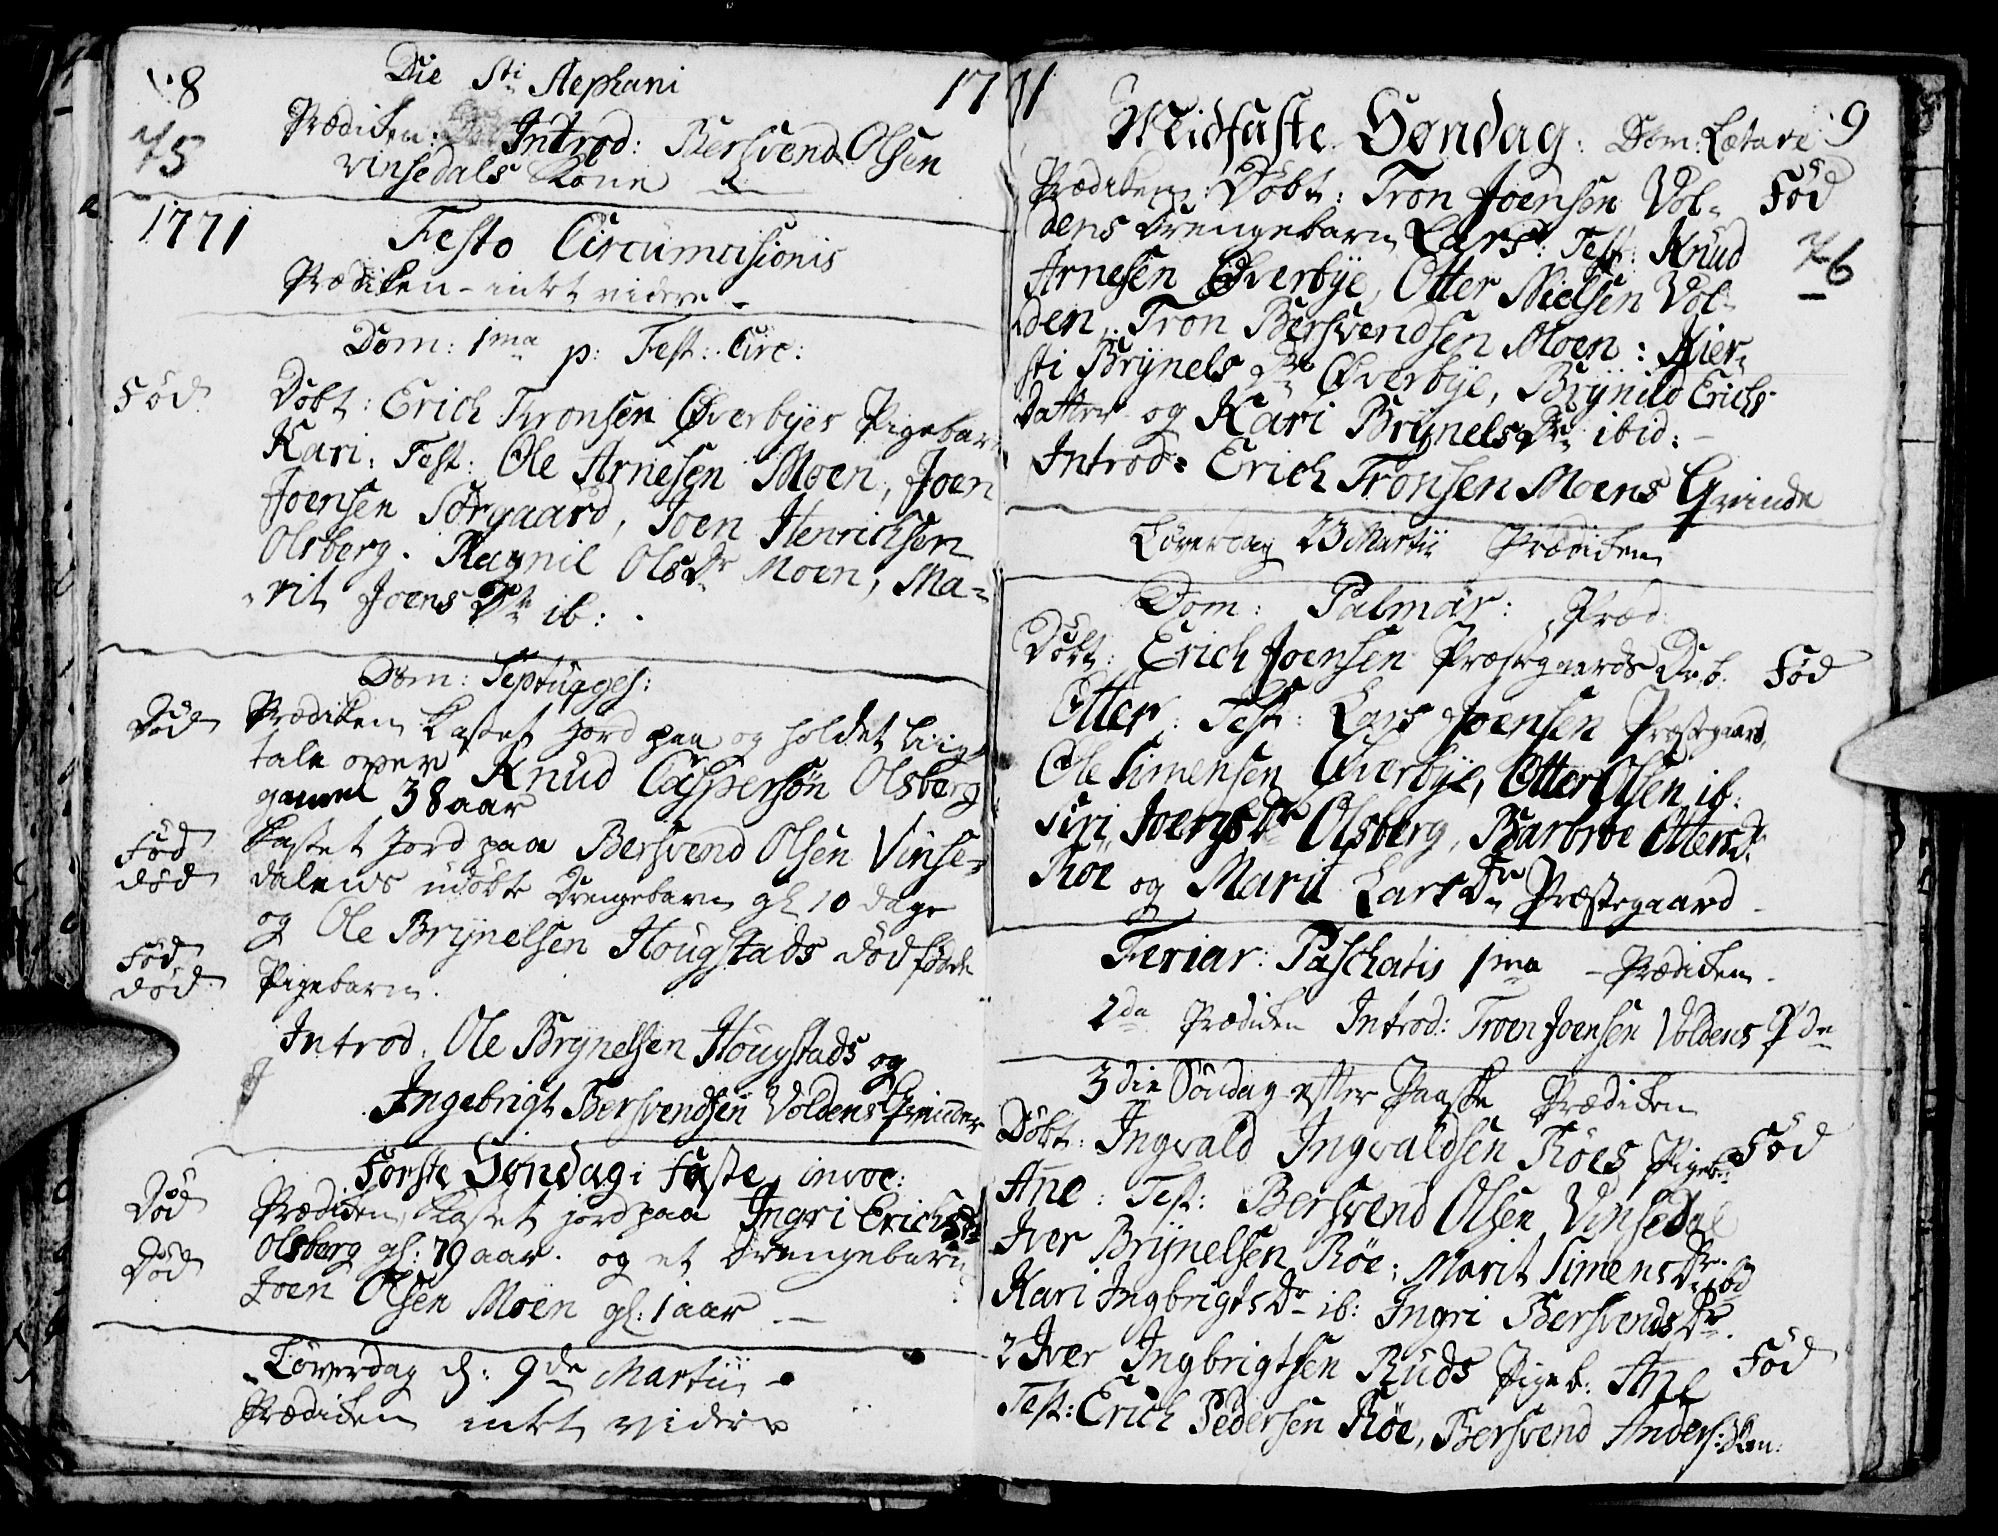 8
Die Sti Stephani
1771
75
Prædiken: Introd: Bersvend Olsen
vinsedals Kone
1771
Festo Circumcisionis
Prædiken - intet videre -
Dom: 1ma p: Fest: Circ:
Fød
Døbt: Erich Tronsen Øverbyes Pigebarn
Kari: Test: Ole Arnesen Moen, Joen
Joensen Sørgaard, Joen Henrichsen
Olsberg. Ragnil Olsdr Moen, Ma-
rit Joens Dr ib:
Dom: Septuages:
Død
Prædiken kastet jord paa og holdet liig
tale over Knud Caspersøn Olsberg
gammel 38 aar
Fød
død
kastet Jord paa Bersvend Olsen Vinse-
dalens udøbte Drengebarn gl 10 dage
og Ole Brynelsen Hougstads dødfødde
Fød
død
Pigebarn.
Introd. Ole Brynelsen Hougstads og
Ingebrigt Bersvendsen Voldens Qvinder
Første Søndag i Faste invoc:
Død
Prædiken, kastet jord paa Ingri Erichsdr
Død
Olsberg gl: 79 aar. og et Drengebarn
Joen Olsen Moen gl: 1 aar
Løverdag d: 9de Martii
Prædiken intet videre
9
Midfaste Søndag: Dom: Lætare
Prædiken: Døbt: Tron Joensen Vol-
Fød
dens Drengebarn Lars: Test: Knud
76
Arnesen Øverbye, Otter Nielsen Vol-
den, Tron Bersvendsen Moen: Kier-
sti Brynels Dr Øverbye, Brynild Erichs
Datter og Kari Brynels Dr ibid: -
Introd: Erich Tronsen Moens Qvinde
Løverdag 23 Martii Prædiken
Dom: Palmar: Præd
Døbt: Erich Joensen Præstegaards Dr.b.
Fød
Otter: Test: Lars Joensen Præstegaard,
Ole Simensen Øverbye, Otter Olsen ib:
Siri Joens Dr Olsberg, Barbroe Ottersdr
Roe og Marit Lars Dr Præstegaard
Feriar: Paschatis 1ma - Prædiken -
2da Prædiken Introd: Troen Joensen Voldens Q'de
3die Søndag efter Paaske Prædiken
Døbt: Ingvald Ingvaldsen Røes Pigeb:
Fød
Ane: Test: Bersvend Olsen Vinsedal
Iver Brynelsen Røe; Marit Simens Dr ibid
Kari Ingbrigts Dr ib: Ingri Bersvends Dr.
2 Iver Ingbrigtsen Ruds Pigeb: Ane
Fød
Test: Erich Pedersen Røe, Bersvend Anders: